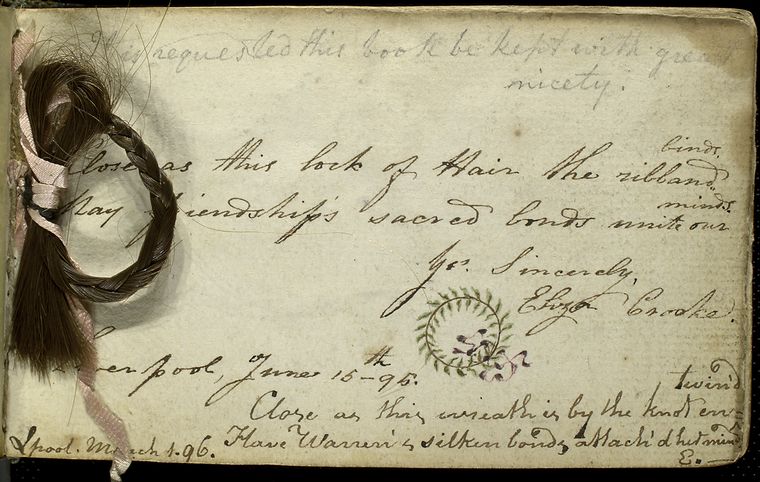 It is requested this book be kept with great
nicety.
Close as this lock of Hair the ribband binds,
May friendship's sacred bonds unite our minds.
Yrs. Sincerely,
Eliza Crooke.
Liverpool, June 15th - 95.
Close as this wreath is by the knot en=twin'd
Lpool. March 1. 96. Have Warren's silken bonds attach'd her mind
E. —